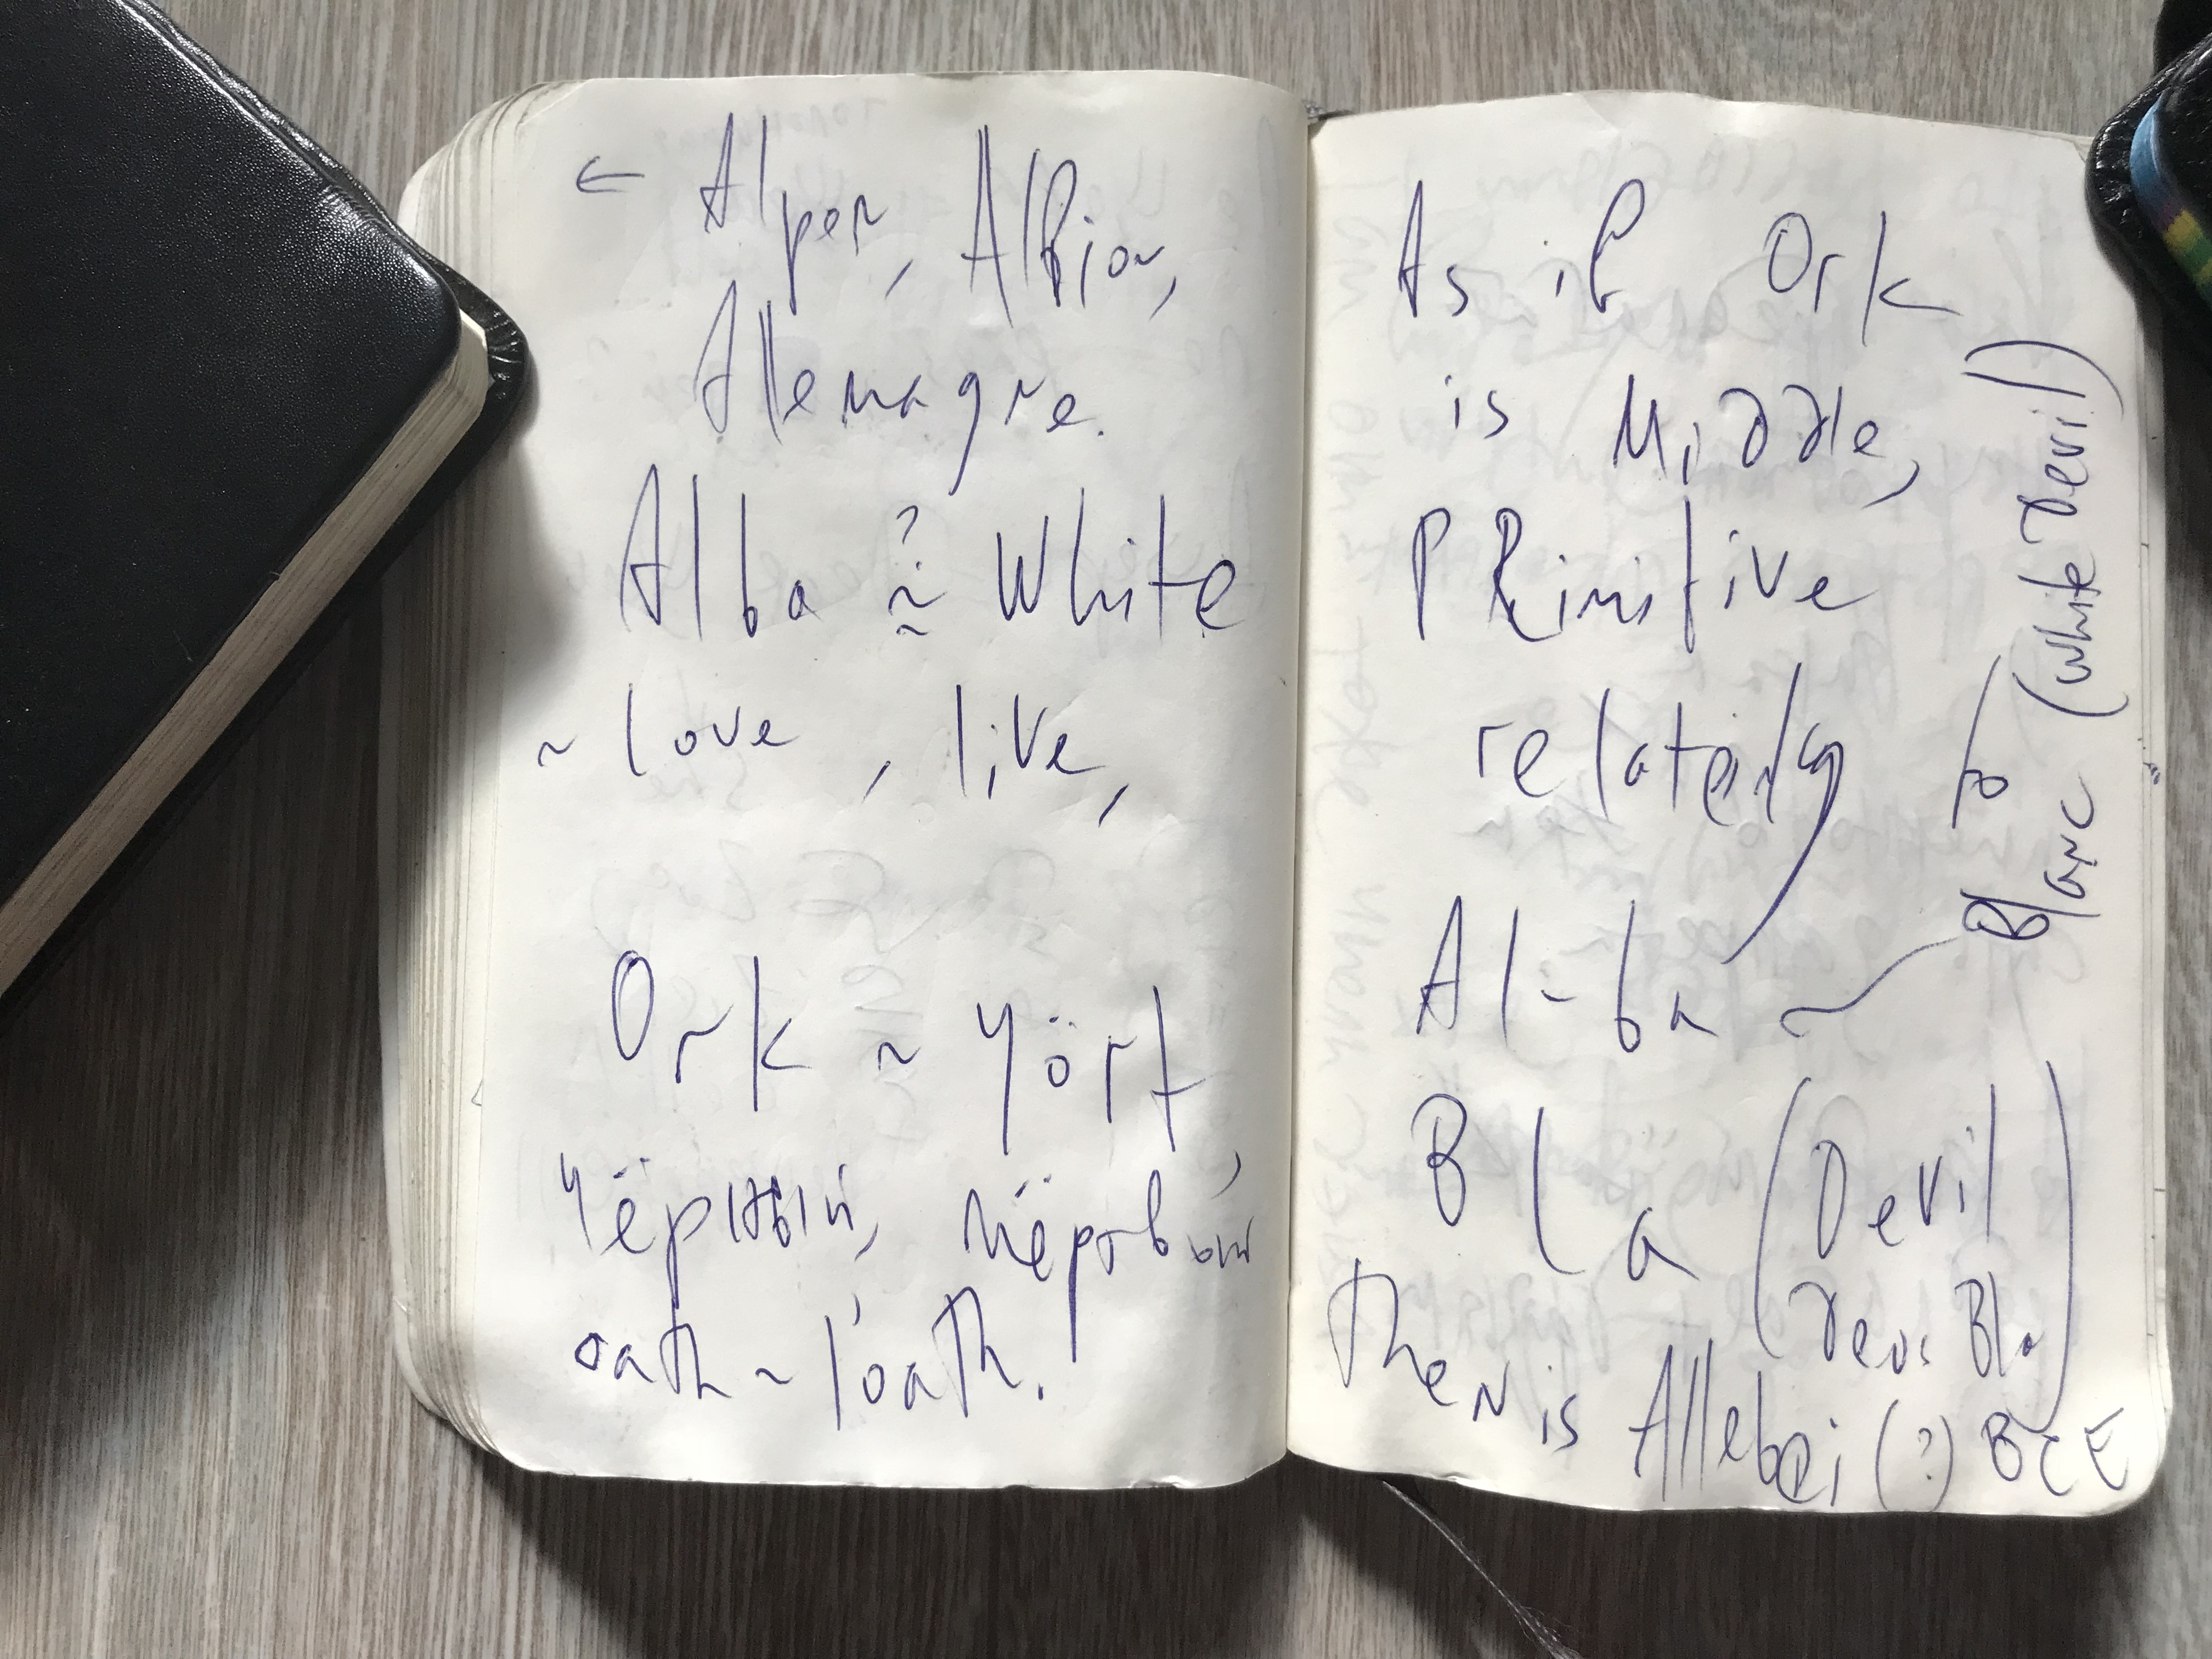 ← Alpen, Albion,
Allemagne.
Alba ≈ White
~ love, live,
Ork ~ чört
чёртый, мёртвый,
oath ~ loath.
As if Ork
is Middle,
PRimitive
relatedly to
Al-ba ~ Blanc (white devil)
Bla (Devil
(devi Bla)
then is Allebei (?) BCE